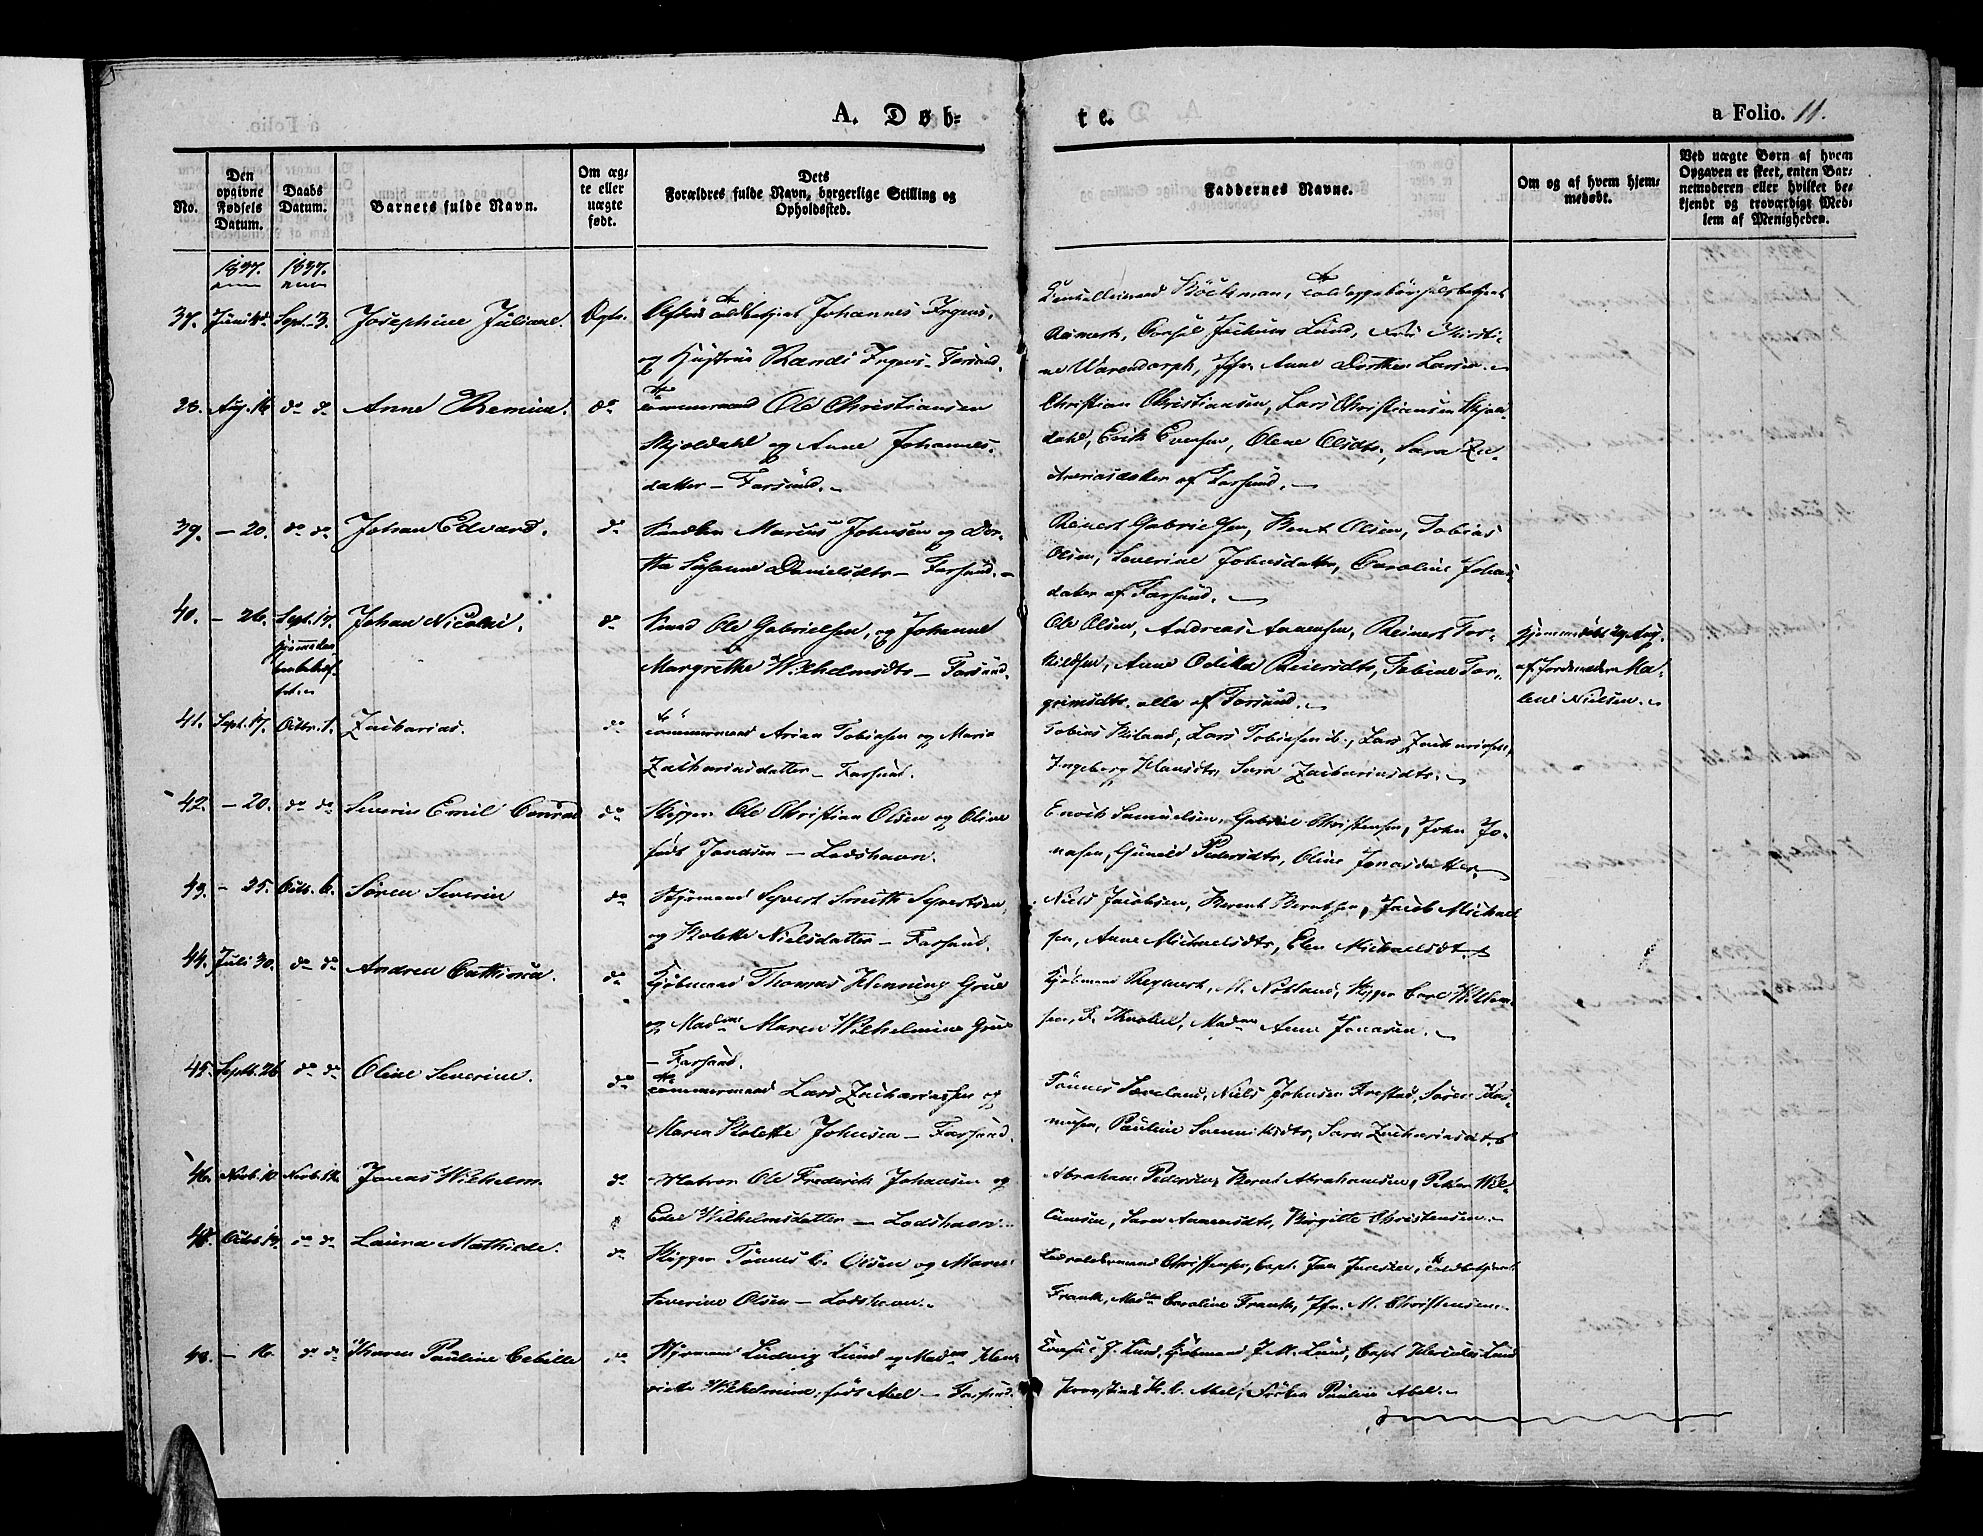 A. Døb=
te.
a Folio. 11.
No.
Den opgivne Fødsels Datum.
Daabs Datum.
Barnets fulde Navn.
Om ægte eller uægte født.
Dets Forældres fulde Navn, borgerlige Stilling og Opholdssted.
Faddernes Navne.
Om og af hvem hjemmedøbt.
Ved uægte Børn af hvem Opgaven er skeet, enten Barnemoderen eller hvilket bekjendt og troværdigt Medlem af Menigheden.
1837. 1837.
37. Sept. 3. Josephine Juliane. Johannes Irgens,
og Hustrue Randi Irgens - Farsund.
Böckman,
Reinert, Consul Jochum Lund,
Warendorph, Jfr. Anne Dorthea Larsen.
Aug. 16 do do Anne do Tømmermand Ole Christiansen
Skjoldahl og Anne Johannes-
datter - Farsund.
Christian Christiansen, Lars Christiansen Skjol-
dahl, Erik Evensen, Olene Olsdtr, Sara Za-
chariasdatter af Farsund.
39. - 20. do do Johan Edvard. do Marcus Johnsen og Dor-
thea Susanne Danielsdtr - Farsund.
Reinert Gabrielsen, Bent Olsen, Tobias
Olsen, Severine Johnsdatter, Caroline Johns-
datter af Farsund.
40. - 26. Sept. 17. Johan Nicolai. do Smed Ole Gabrielsen, og Johanne
Margrethe Wilhelmsdtr - Farsund.
Ole Olsen, Andreas Aanensen, Reinert Tor-
kildsen, Anne Reiersdtr, Tobine Tor-
grimsdtr. alle af Farsund.
hjemmedøbt 29 Aug.
af Jordemoder Ma-
lene Nielsen.
41. Sept. 17. Octbr. 1. Zacharias. do Tømmermand Arian Tobiasen og Maria
Zachariasdatter - Farsund.
Tobias Lars Tobiasen Lars Zachariasen,
Ingeborg Hansdtr, Sara Zachariasdtr.
42. - 20. do do Severin Emil Conrad do Skipper Ole Christian Olsen og Oline
født Jonassen - Lodshavn.
Enoch Samuelsen, Gabriel Christensen, John Jo-
nasen, Gunild Pedersdtr, Oline Jonasdatter
43. - 25. Octb. 6. Søren Severin do Styrmand Syvert Smith Syvertsen,
og Bolette Nielsdatter - Farsund.
Niels Jacobsen, Berent Berntsen, Jacob Michael-
sen, Anne Michaelsdtr, Elen Michaelsdtr
44. Juli 30. do do Andrea Cathinca. do Kjøbmand Thomas Henning Grue
og Madme Maren Wilhelmine Grue
- Farsund.
Kjøbmand Reymert, M. Nokland, Skipper Carl Wilhelm-
sen, Madme Anne Jonasen.
45. Septb. 26 do do Oline Severine. do Tømmermand Lars Zachariassen og
Maren Bolette Johnsen - Farsund.
Tønnes Niels Johnsen Søren Ras-
musen, Pauline Sara Zachariasdtr
46. Novb. 10. Novb. Jonas Wilhelm. do Matros Ole Frederik Johansen og
Edel Wilhelmsdatter - Lodshavn.
Abraham Pedersen, Bernt Abrahamsen, Peter Wil-
Sara Aanensdtr, Birgitte Christensen.
Octb. do do Laura Mathilde. do Skipper Tønnes C. Olsen og Maren
Severine Olsen - Lodshavn.
Christensen, Capt. Jan Toldbetjent
Frank, Madme Caroline Frank, Jfr. M. Christensen.
48. - 16. do do Karen Pauline Cecilie do Styrmand Ludvig Lund og Madme Hen-
riette Wilhelmine, født Abel - Farsund.
Consul J. Lund, Kjøbmand J. M. Lund, Capt Hercules Lund
H. C. Abel, Frøken Pauline Abel.